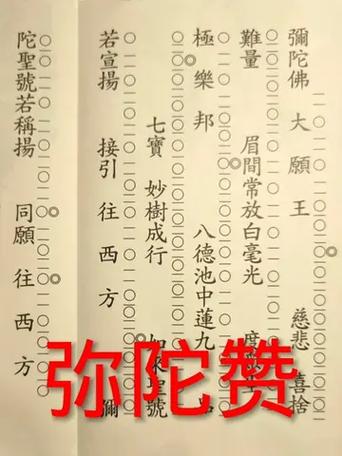 彌陀佛大願王 慈悲喜捨
難量 眉間常放白毫光 度
極樂邦 八德池中蓮九品
七寶妙樹成行 如來聖號
若宣揚 接引往西方 彌
陀聖號若稱揚 同願往西方
弥陀赞